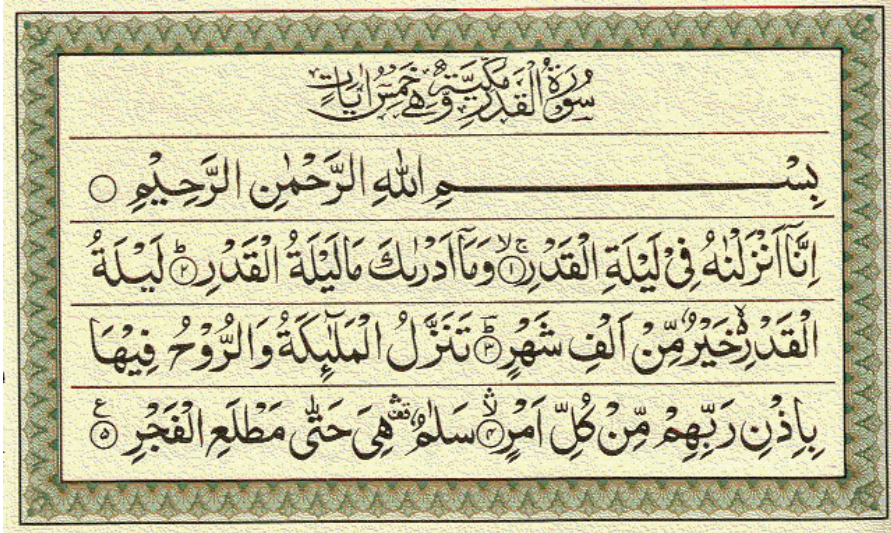 سُوْرَةُ الْقَدْرِ مَكِّيَّةٌ وَّهِیَ خَمْسُ اٰيَاتٍ
بِسْمِ اللّٰهِ الرَّحْمٰنِ الرَّحِيْمِ ۝
اِنَّاۤ اَنْزَلْنٰهُ فِیْ لَيْلَةِ الْقَدْرِ ۚۖ﴿۱﴾ وَمَاۤ اَدْرٰىكَ مَا لَيْلَةُ الْقَدْرِ ؕ﴿۲﴾ لَيْلَةُ
الْقَدْرِ ۙ۬ خَيْرٌ مِّنْ اَلْفِ شَهْرٍ ؕ﴿۳﴾ تَنَزَّلُ الْمَلٰٓئِكَةُ وَالرُّوْحُ فِيْهَا
بِاِذْنِ رَبِّهِمْ مِّنْ كُلِّ اَمْرٍ ۙ﴿۴﴾ سَلٰمٌ ۛ۟ هِیَ حَتّٰی مَطْلَعِ الْفَجْرِ ﴿۵﴾ ع